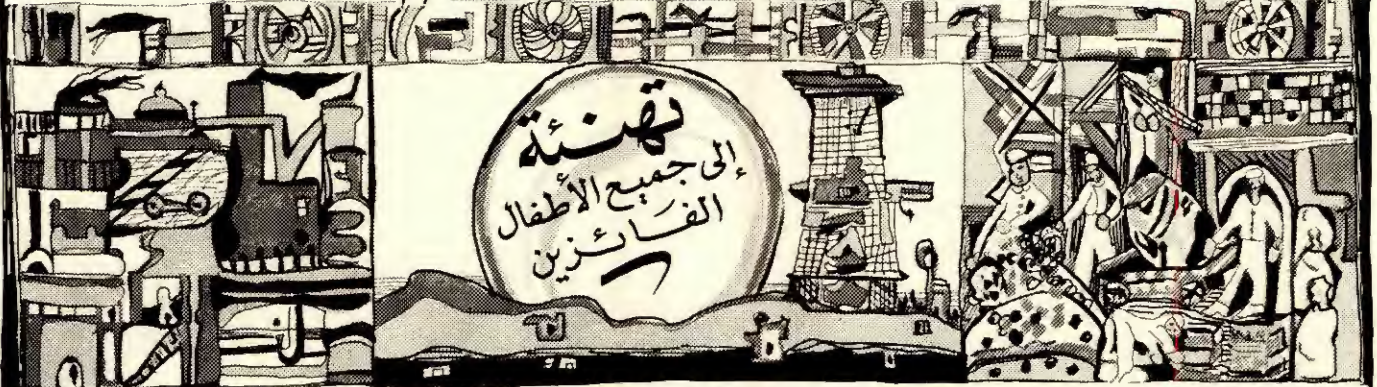 تهنئة
إلى جميع الأطفال
الفائزين